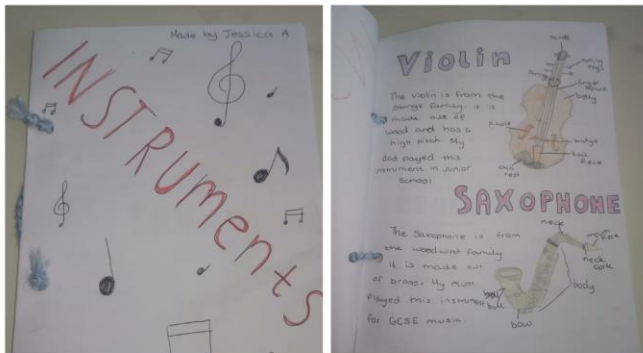 Made by Jessica A
INSTRUMENTS
Violin
The violin is from the
family. it is
made out of
wood and has a
high pitch. My
dad played this
instrument in Junior
School
Scroll
tuning
Pegs
Strings
finger
Board
belly
f hole
bridge
tail
Piece
chin
rest
SAXOPHONE
The Saxophone is from
the woodwind family
it is made out
of brass. My mum
Played this instrument
for GCSE music.
neck
mouth
Piece
neck
cork
body
bell
bow